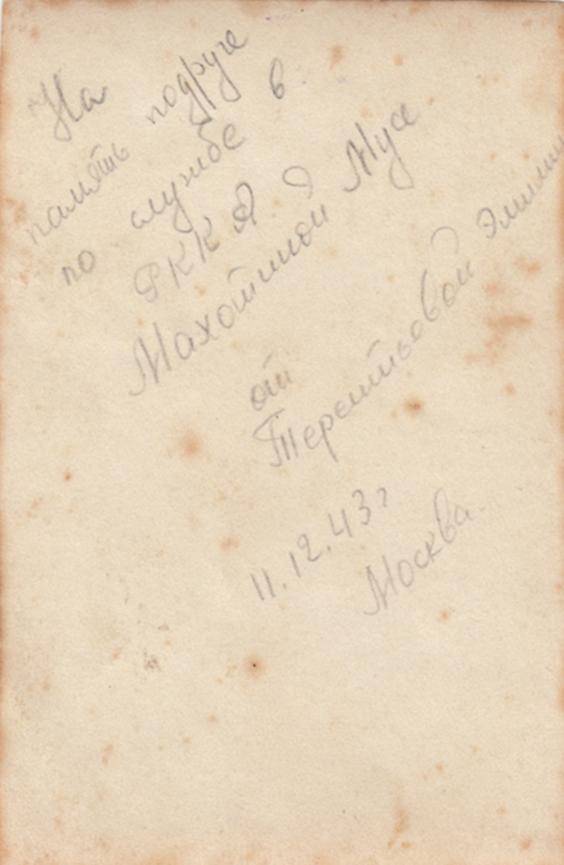 На
память подруге
по службе в
РККА
Махотиной Мусе
от
Терентьовой
11.12.43г
Москва.